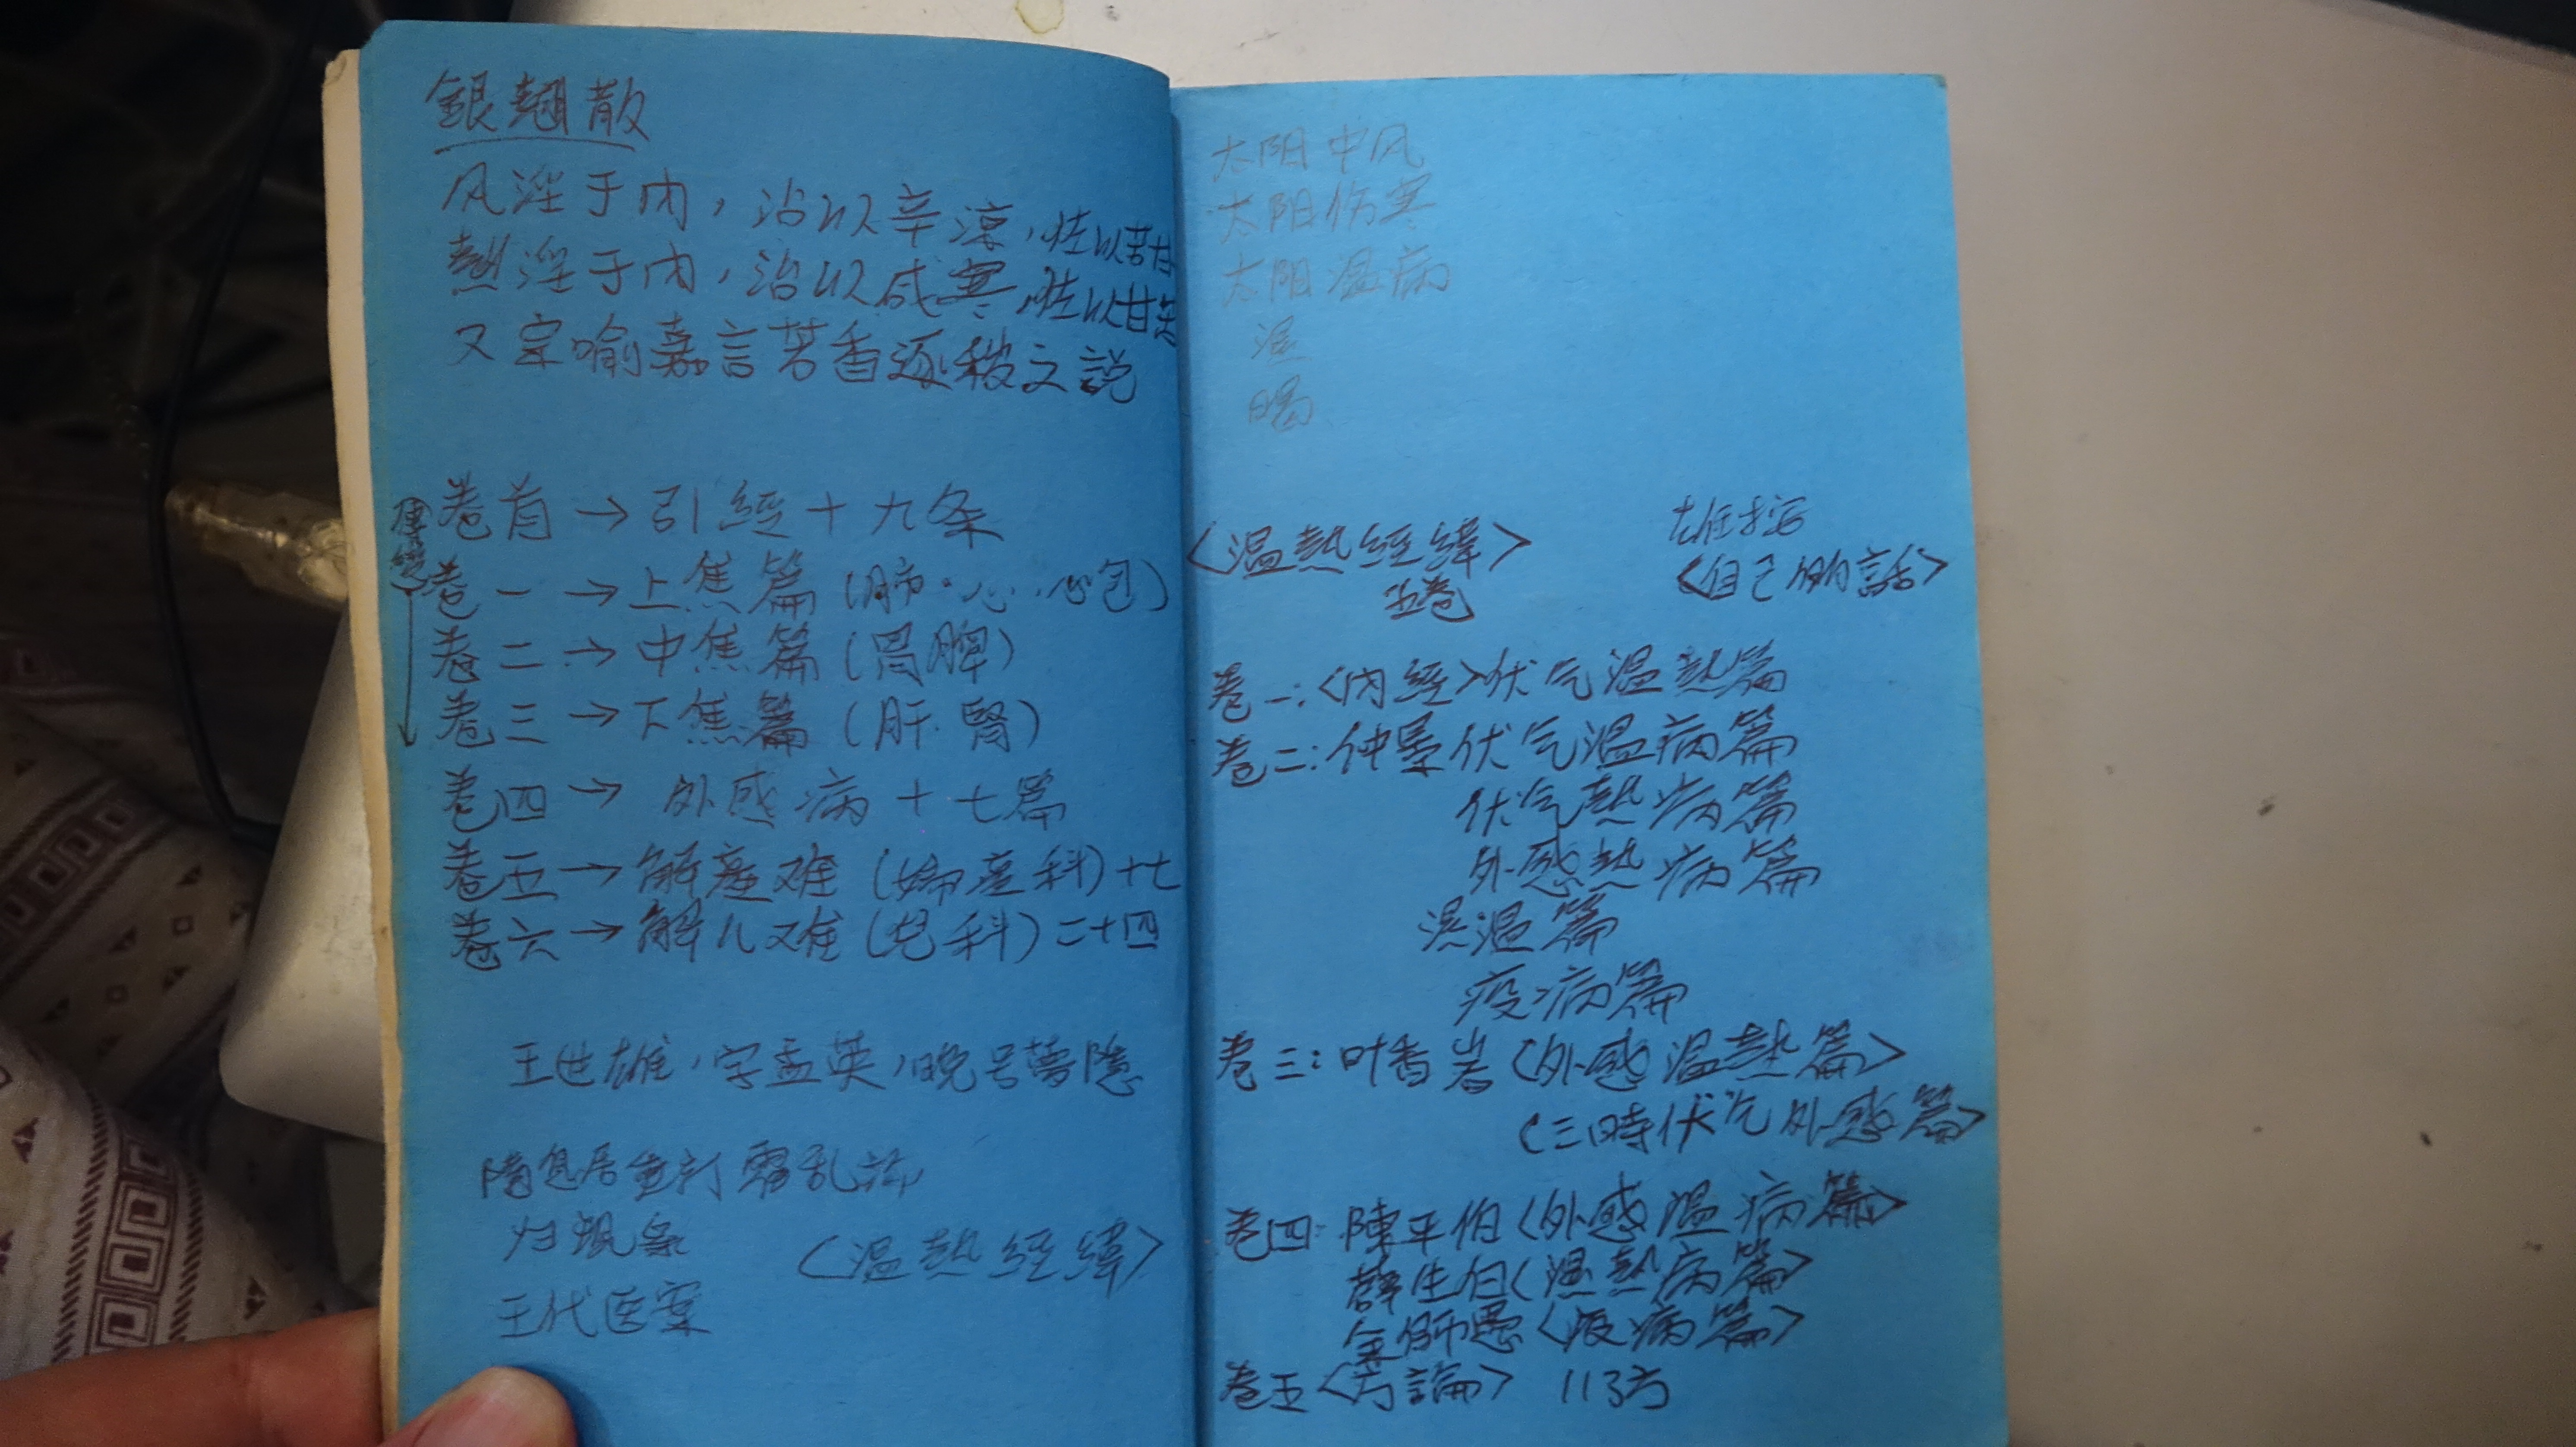 銀翹散
风淫于内，治以辛涼，佐以苦甘
熱淫于内，治以咸寒，佐以甘苦
又宗喻嘉言芳香逐穢之説
卷首→引經十九条
卷一→上焦篇（肺·心·心包）
卷二→中焦篇（胃脾）
卷三→下焦篇（肝·腎）
卷四→外感病十七篇
卷五→解産难（婦産科）十七
卷六→解儿难（児科）二十四
王世雄，字孟英，晚号夢隱
随息居重訂霍乱論
归硯录
〈温熱經緯〉
王氏医案
太阳中风
太阳伤寒
太阳温病
湿
暍
〈温熱經緯〉
五卷
雄按
〈自己的話〉
卷一：〈内經〉伏气温熱篇
卷二：仲景伏气温病篇
伏气熱病篇
外感熱病篇
湿温篇
疫病篇
卷三：叶香岩〈外感温熱篇〉
〈三時伏气外感篇〉
卷四：陳平伯〈外感温病篇〉
薛生白〈湿熱病篇〉
余师愚〈疫病篇〉
卷五〈方論〉 113方